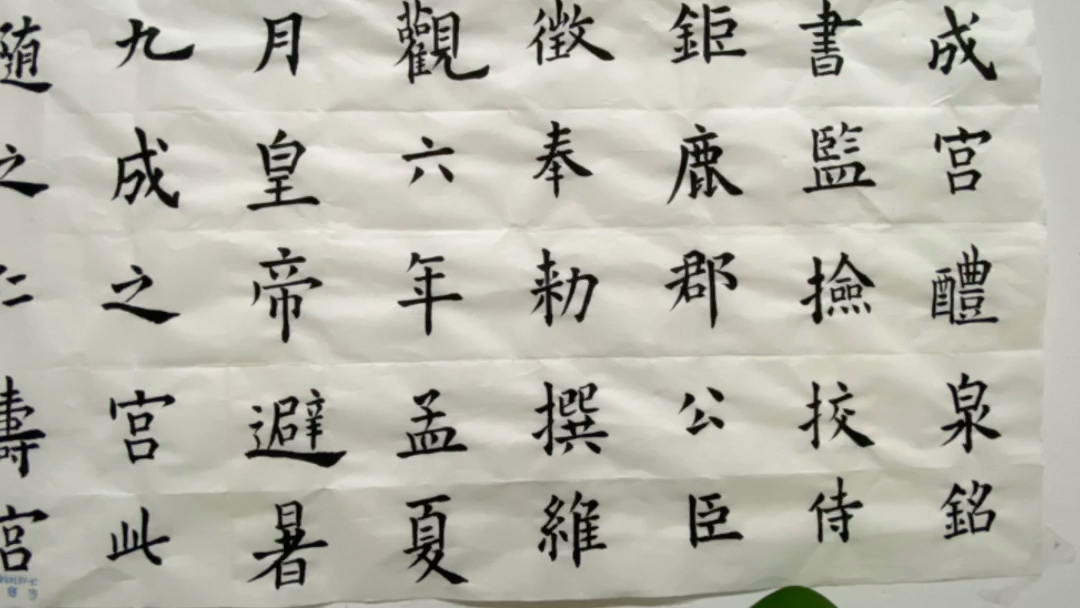 成宮醴泉銘
書監撿挍侍
鉅鹿郡公臣
徵奉勑撰維
觀六年孟夏
月皇帝避暑
九成之宮此
隨之仁壽宮